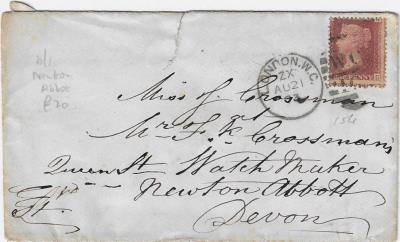 b/s
Newton
Abbot
£20
LONDON. W.C.
ZX
AU 21
W.C.
PENNY
Miss J. Crossman
Mr. F. Crossman's
Queen St Watch Maker
Newton Abbott
Devon